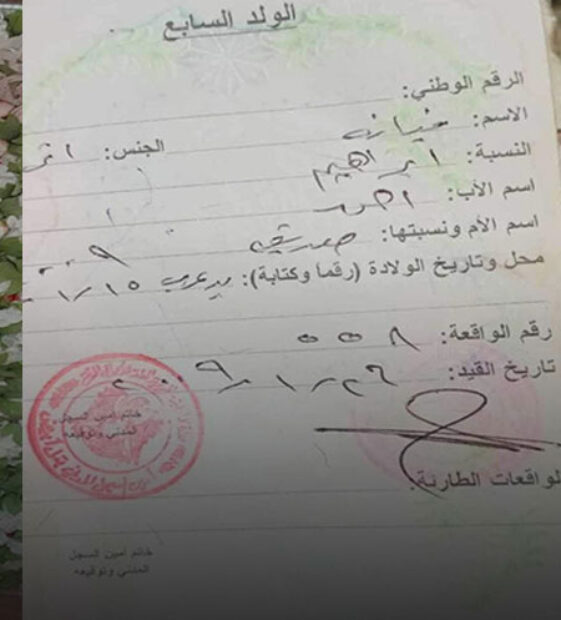 الولد السابع
الرقم الوطني:
الاسم:
الجنس:
النسبة: ابراهيم
اسم الأب: احمد
اسم الأم ونسبتها:
محل وتاريخ الولادة (رقماً وكتابة): ١/١٥
رقم الواقعة: ٥٥٨
تاريخ القيد: ٢٠٠٩/١/٢٦
خاتم أمين السجل
المدني وتوقيعه
الواقعات الطارئة:
خاتم أمين السجل
المدني وتوقيعه